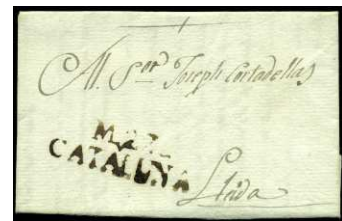 Al. Sor. Joseph Cortadellas
CATALUÑA
Lerida